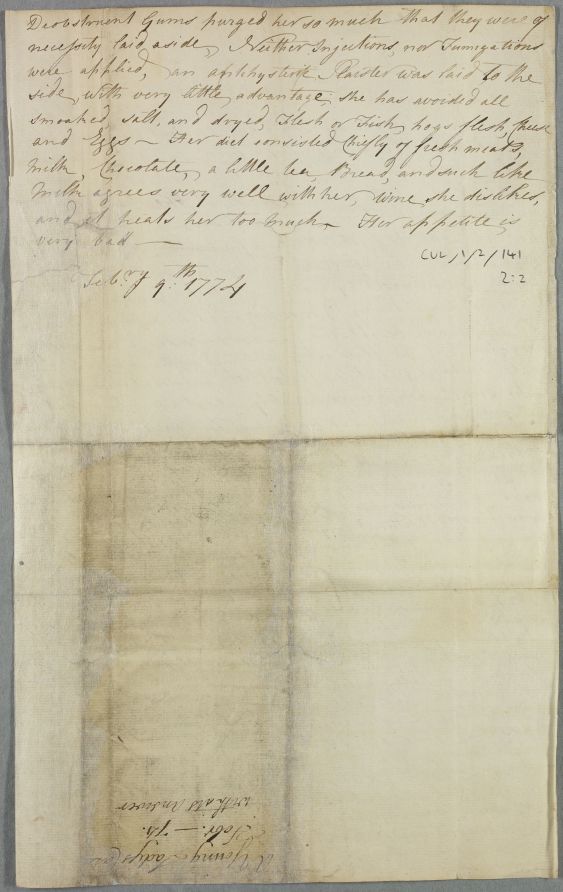 Deobstruent Gums purged her so much that they were of
necessity laid aside, Neither Injections, nor Fumigations
were applied, an antihysterik Plaister was laid to the
side, with very little advantage; she has avoided all
smoaked, salt, and dryed, Flesh or Fish, hogs flesh, Cheese
and Eggs – Her diet consisted chiefly of fresh meats,
milk, Chocolate, a little tea, Bread, and such like
milk agrees very well with her, wine she dislikes,
and it heats her too much – Her appetite is
very bad —
Feb.ry 9.th 1774
CUL/1/2/141
2:2
A Young Lady's Case
Febr. — 74.
with its Answer